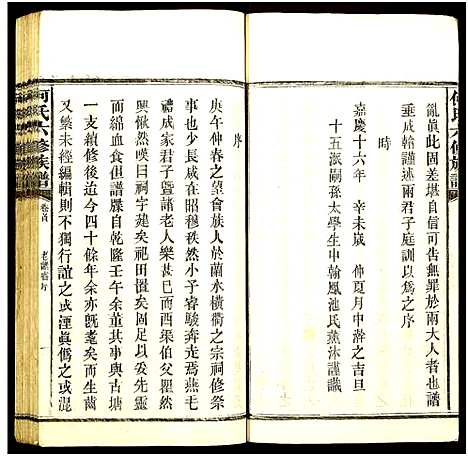 何氏六修族譜
亂眞此固差堪自信可告無罪於兩大人者也譜
垂成翰謹述兩君子庭訓以爲之序
時
嘉慶十六年 辛未歲 仲夏月中澣之吉旦
十五派嗣孫太學生中翰鳳池氏薰沐謹識
序
庚午仲春之望會族人於蕭水橫衢之宗祠修祭
事也少長咸在昭穆秩然小子駿奔走焉燕毛
禮成家君子曁諸老人樂甚已而西渠伯父瞿然
興愀然嘆曰祠宇葺矣祀田置矣所以妥先靈
而綿血食但譜牒自乾隆壬午余董其事與古塘
一支續修後迨今四十餘年余亦旣耄矣而生齒
又樂未經編輯則不獨行誼之或湮眞僞之或混
何氏六修族譜
卷首
老譜序